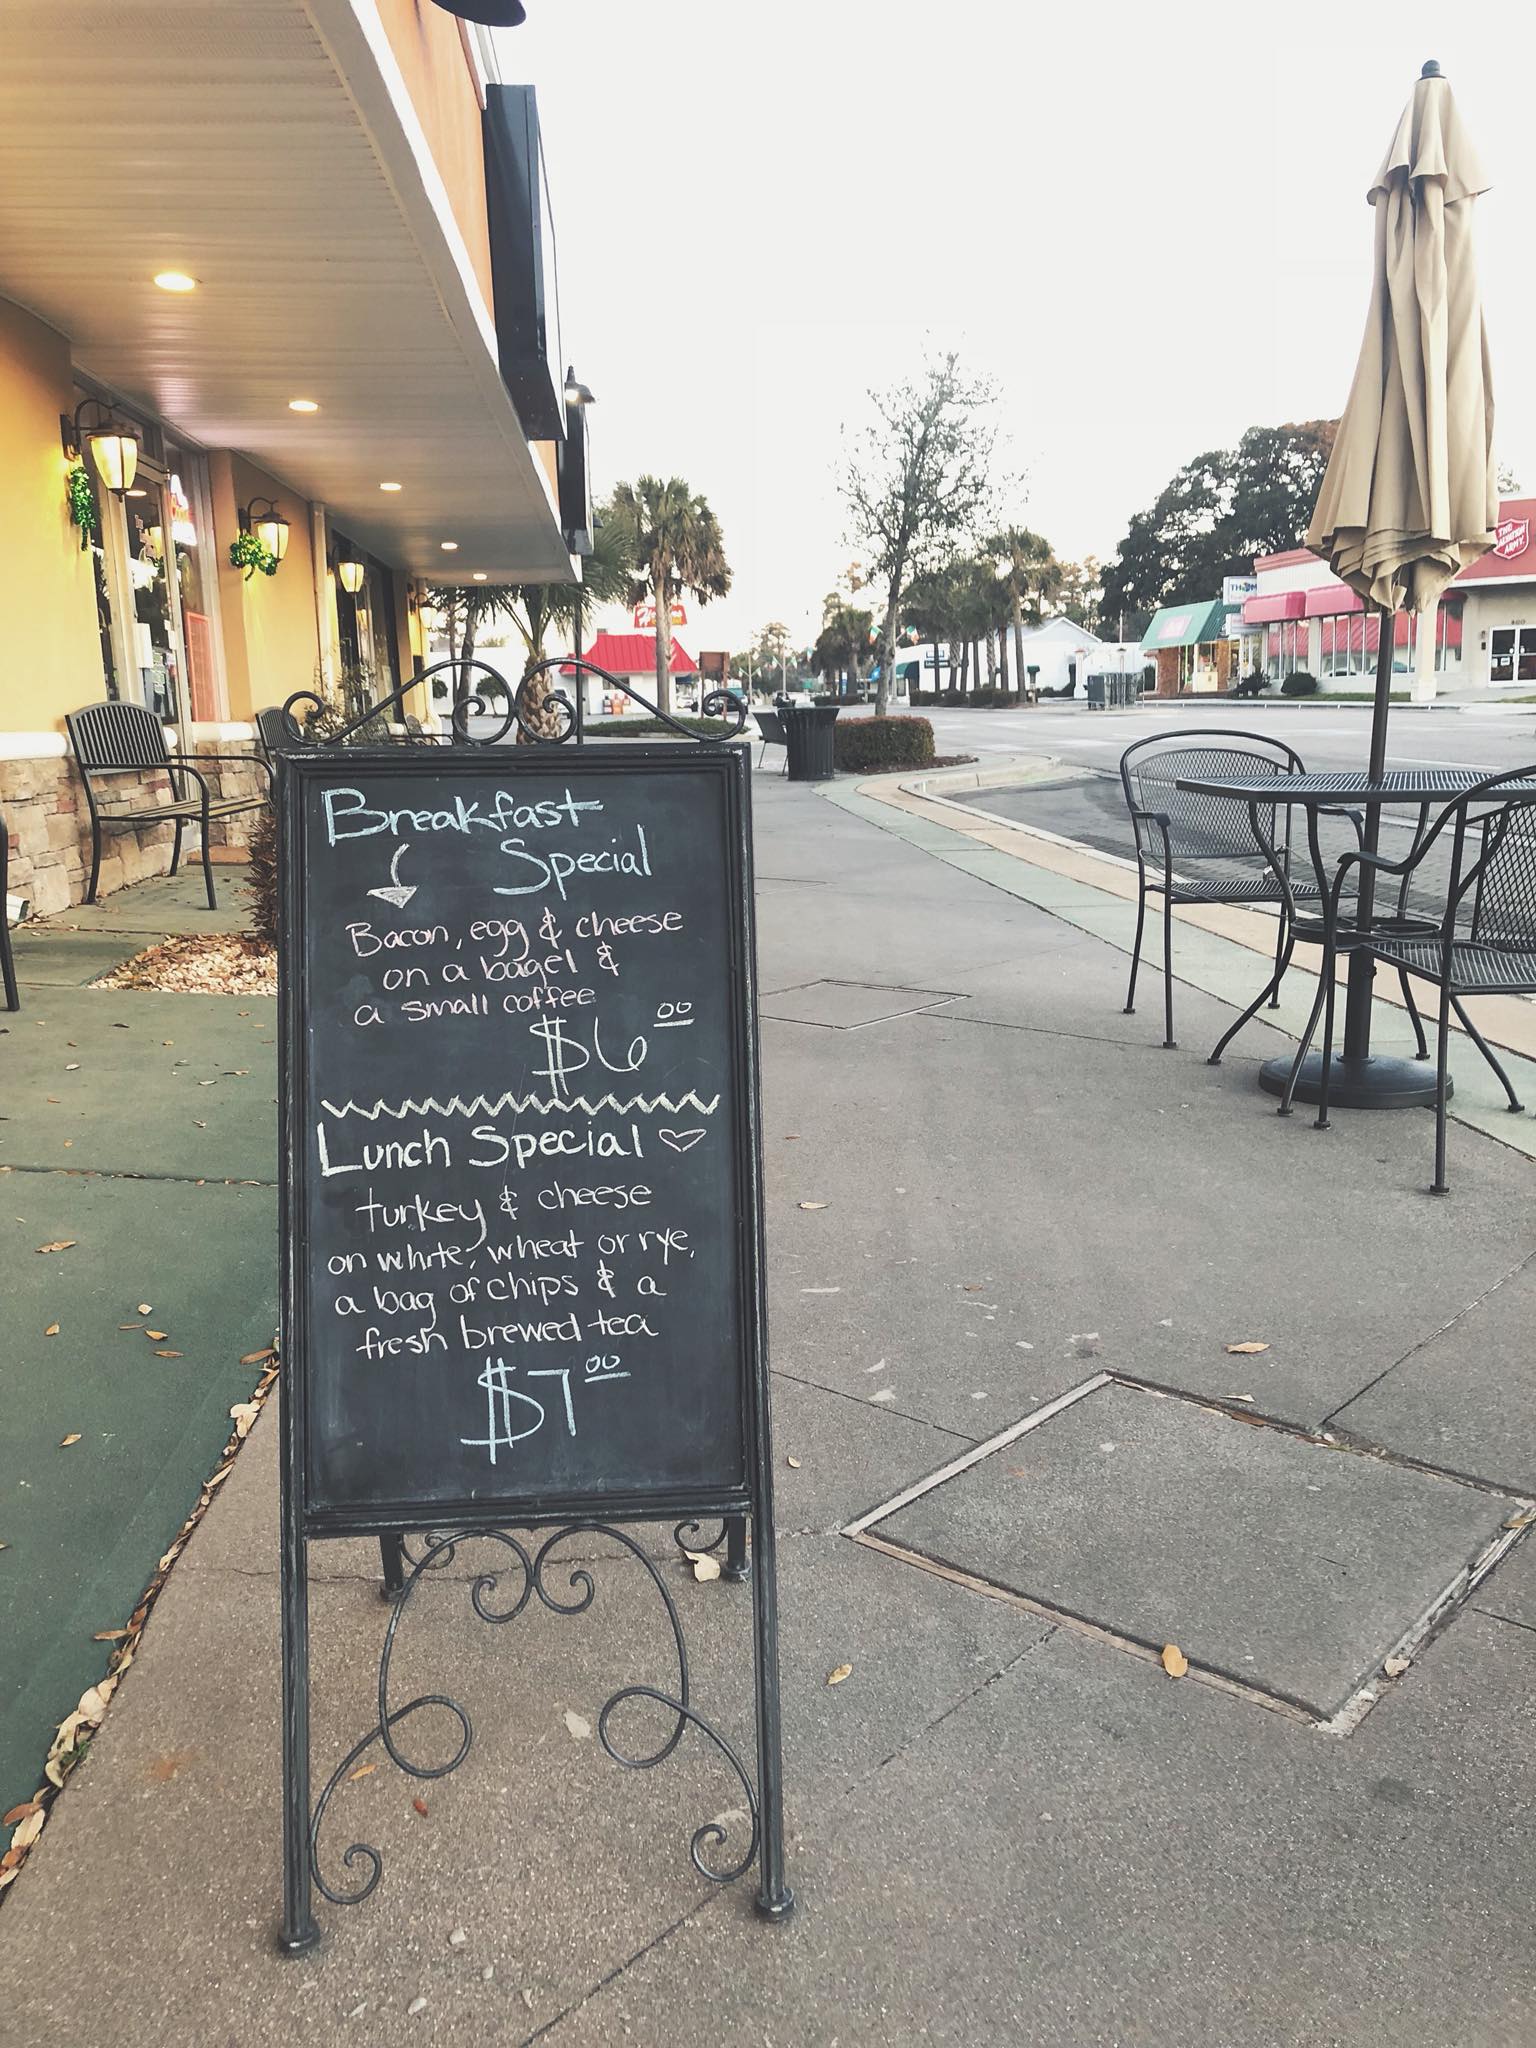 Breakfast
Special
Bacon, egg & cheese
on a bagel &
a small coffee
$6.00
Lunch Special ♡
turkey & cheese
on white, wheat or rye,
a bag of chips & a
fresh brewed tea
$7.00
THE
SALVATION
ARMY
800